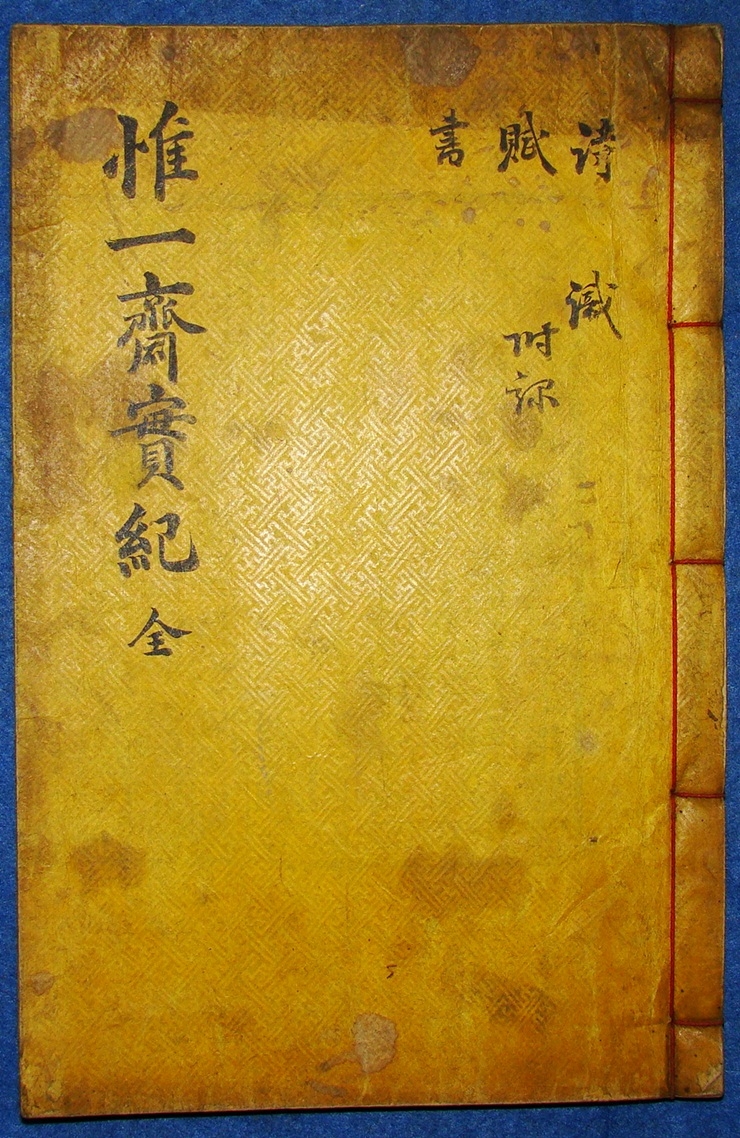 詩 箴
賦 附録
書
惟一齋實紀 全